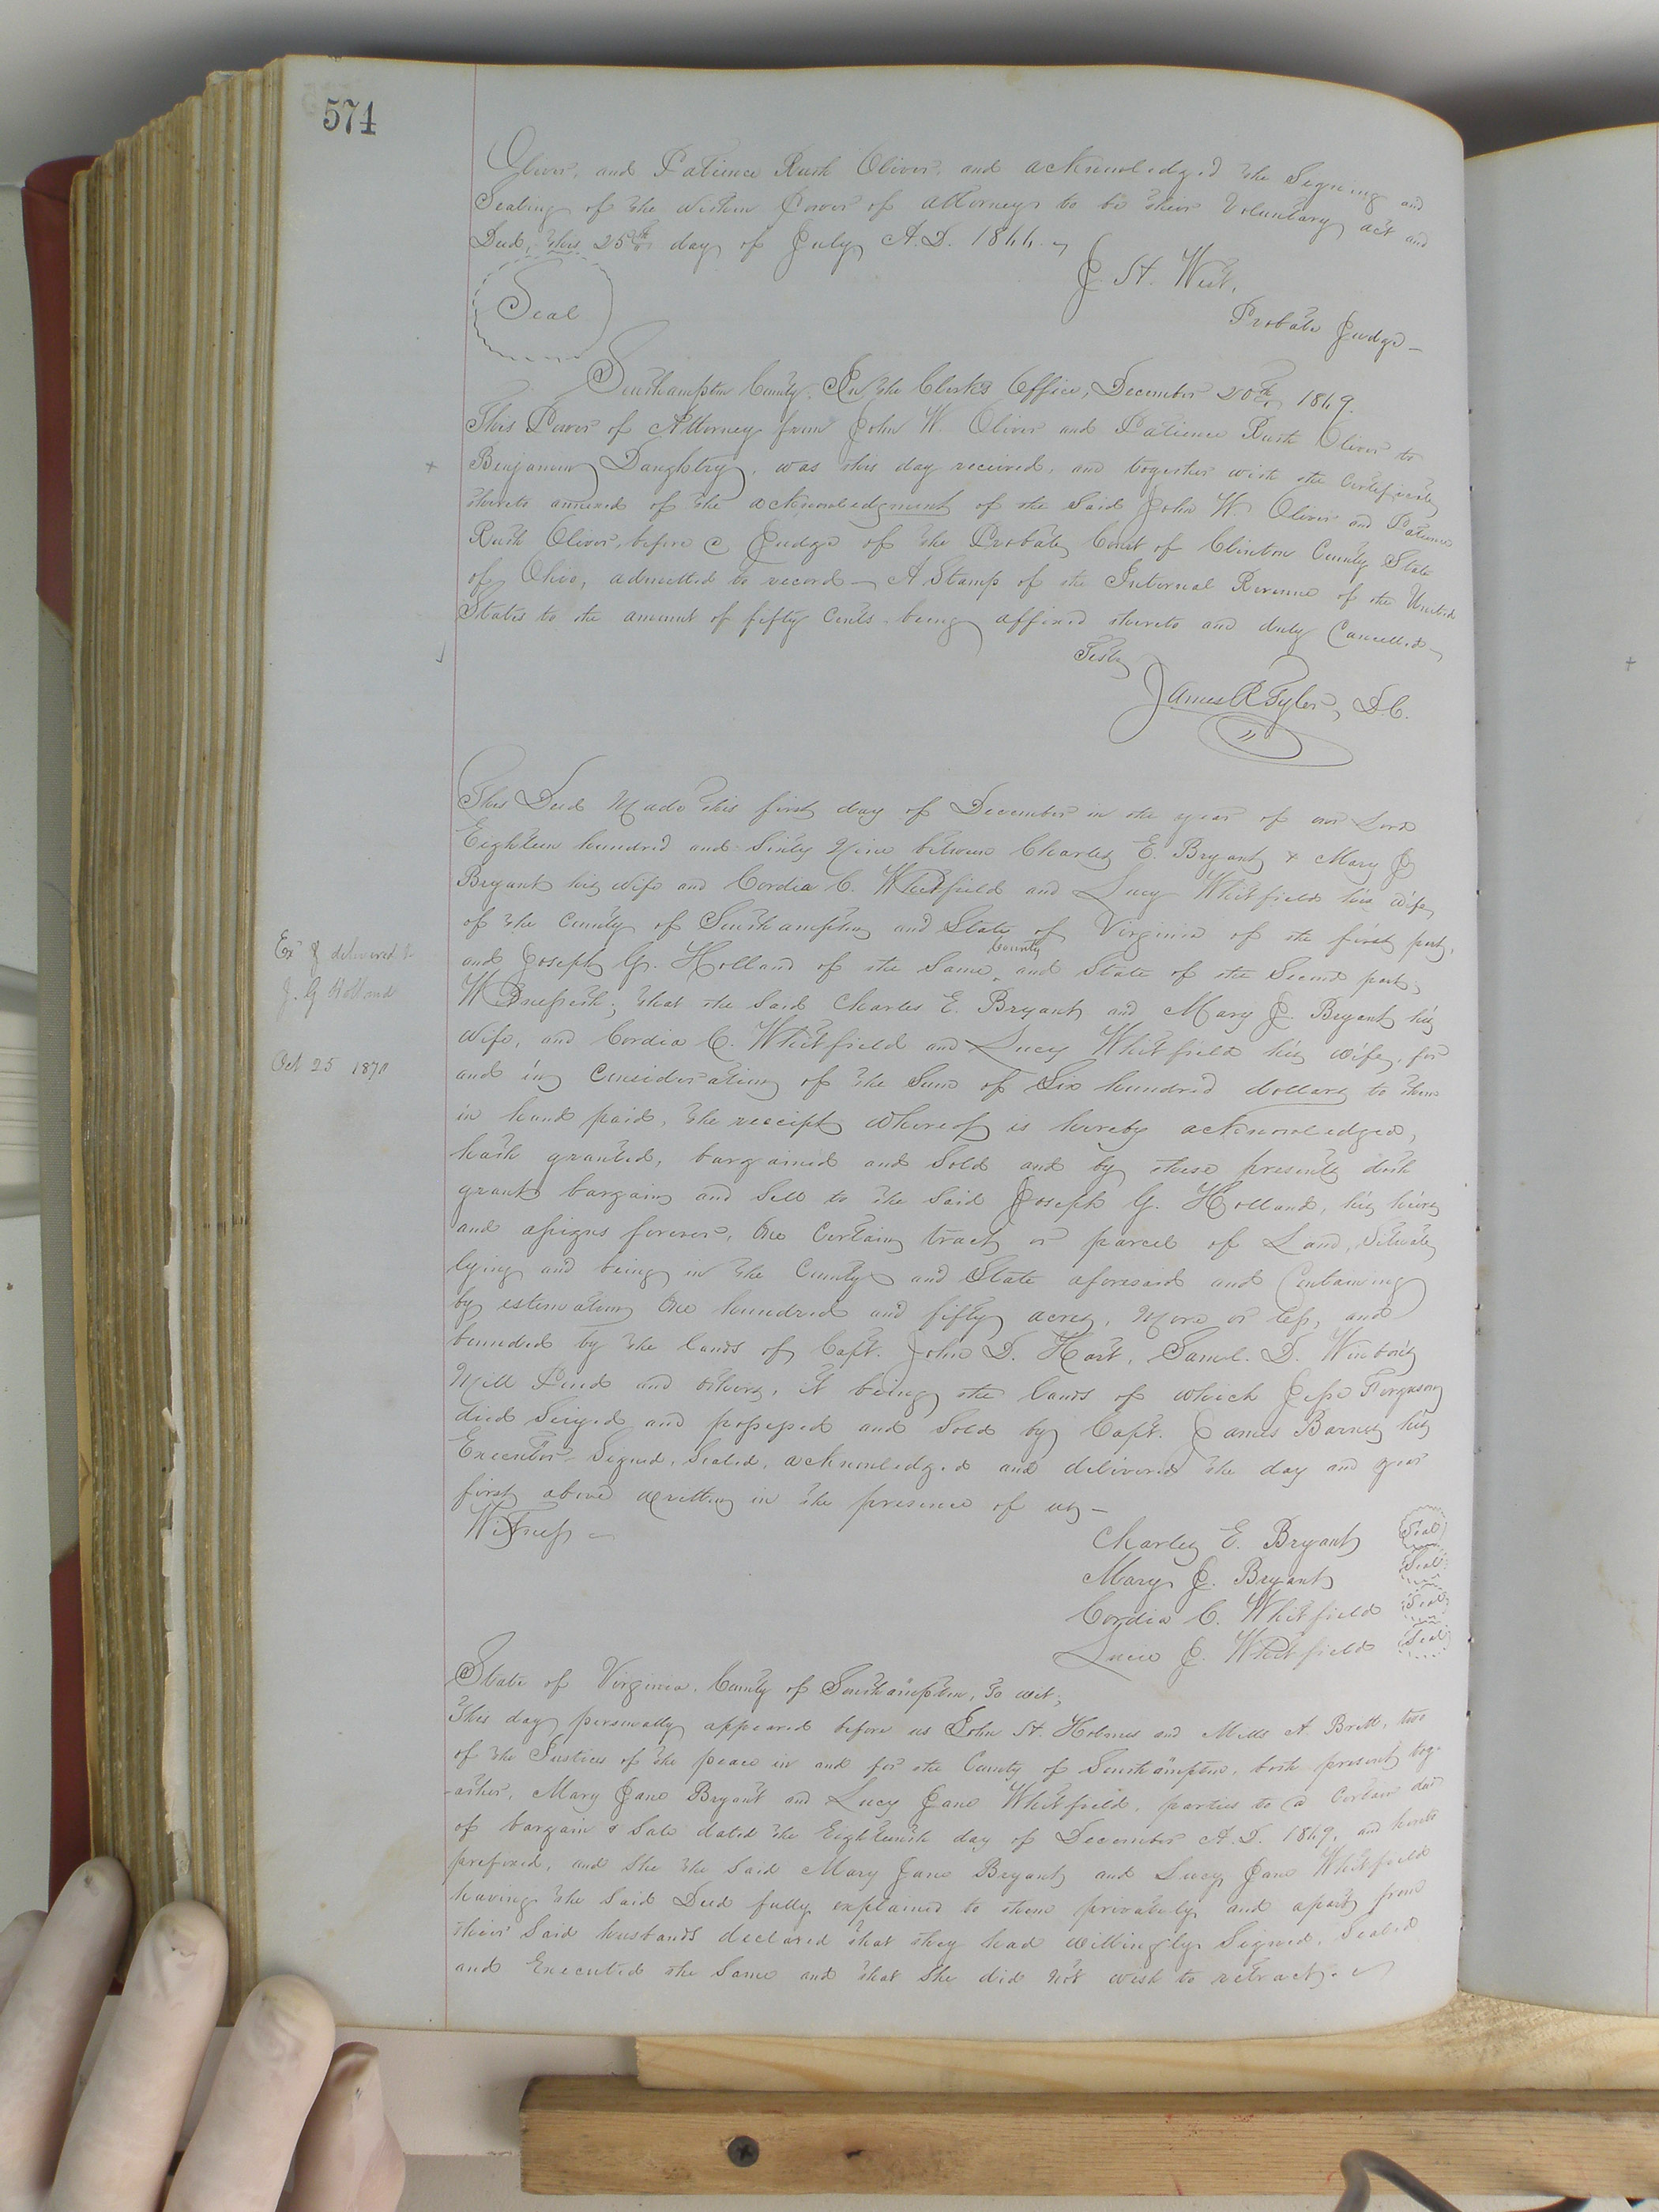 574
Oliver, and Patience Rush Oliver, and acknowledged the Signing and
Sealing of the within Power of attorney to be their Voluntary act and
Deed, this 25th day of July A.D. 1866.
J. H. West,
Seal
Probate Judge
Southampton County. In the Clerks Office, December 20th 1869.
This Power of Attorney from John W. Oliver and Patience Rush Oliver to
Benjamin Daughtry, was this day received, and together with the Certificate
thereto annexed of the acknowledgment of the said John W. Oliver and Patience
Rush Oliver, before a Judge of the Probate Court of Clinton County State
of Ohio, admitted to record — A Stamp of the Internal Revenue of the United
States to the amount of fifty Cents being affixed thereto and duly Cancelled—
Teste
James R Tyler, D.C.
This Deed Made this first day of December in the year of our Lord
Eighteen hundred and Sixty Nine between Charles E. Bryant & Mary J
Bryant his wife and Cordia C. Whitfield and Lucy Whitfield his wife
of the County of Southampton and State of Virginia of the first part,
and Joseph G. Holland of the Same County and State of the Second part;
Ex d & delivered to
J. G Holland
Oct 25 1870
Witnesseth; that the said Charles E. Bryant and Mary J. Bryant his
wife, and Cordia C. Whitfield and Lucy Whitfield his wife, for
and in Consideration of the Sum of Six hundred dollars to them
in hand paid, the receipt whereof is hereby acknowledged,
hath granted, bargained and Sold and by these presents doth
grant bargain and Sell to the Said Joseph G. Holland, his heirs
and assigns forever, One Certain tract or parcel of Land, Situate
lying and being in the County and State aforesaid and Containing
by estimation One hundred and fifty acres, More or less, and
bounded by the lands of Capt. John D. Hart, Saml. D. Winborn's
Mill Pond and others, it being the lands of which Jesse Ferguson
died Seized and possessed and Sold by Capt. James Barnes his
Executor — Signed, Sealed, acknowledged and delivered the day and year
first above written in the presence of us —
Witness —
Charles E. Bryant Seal
Mary J. Bryant Seal
Cordia C. Whitfield Seal
Lucie J. Whitfield Seal
State of Virginia, County of Southampton, To wit;
This day personally appeared before us John H. Holmes and Mills A. Britt, two
of the Justices of the peace in and for the County of Southampton, both present tog-
-ether, Mary Jane Bryant and Lucy Jane Whitfield, parties to a Certain deed
of bargain & Sale dated the Eighteenth day of December A.D. 1869, and hereto
prefixed, and She the Said Mary Jane Bryant and Lucy Jane Whitfield
having the Said Deed fully explained to them privately and apart from
their Said husbands declared that they had willingly Signed, Sealed
and Executed the Same and that She did not wish to retract.